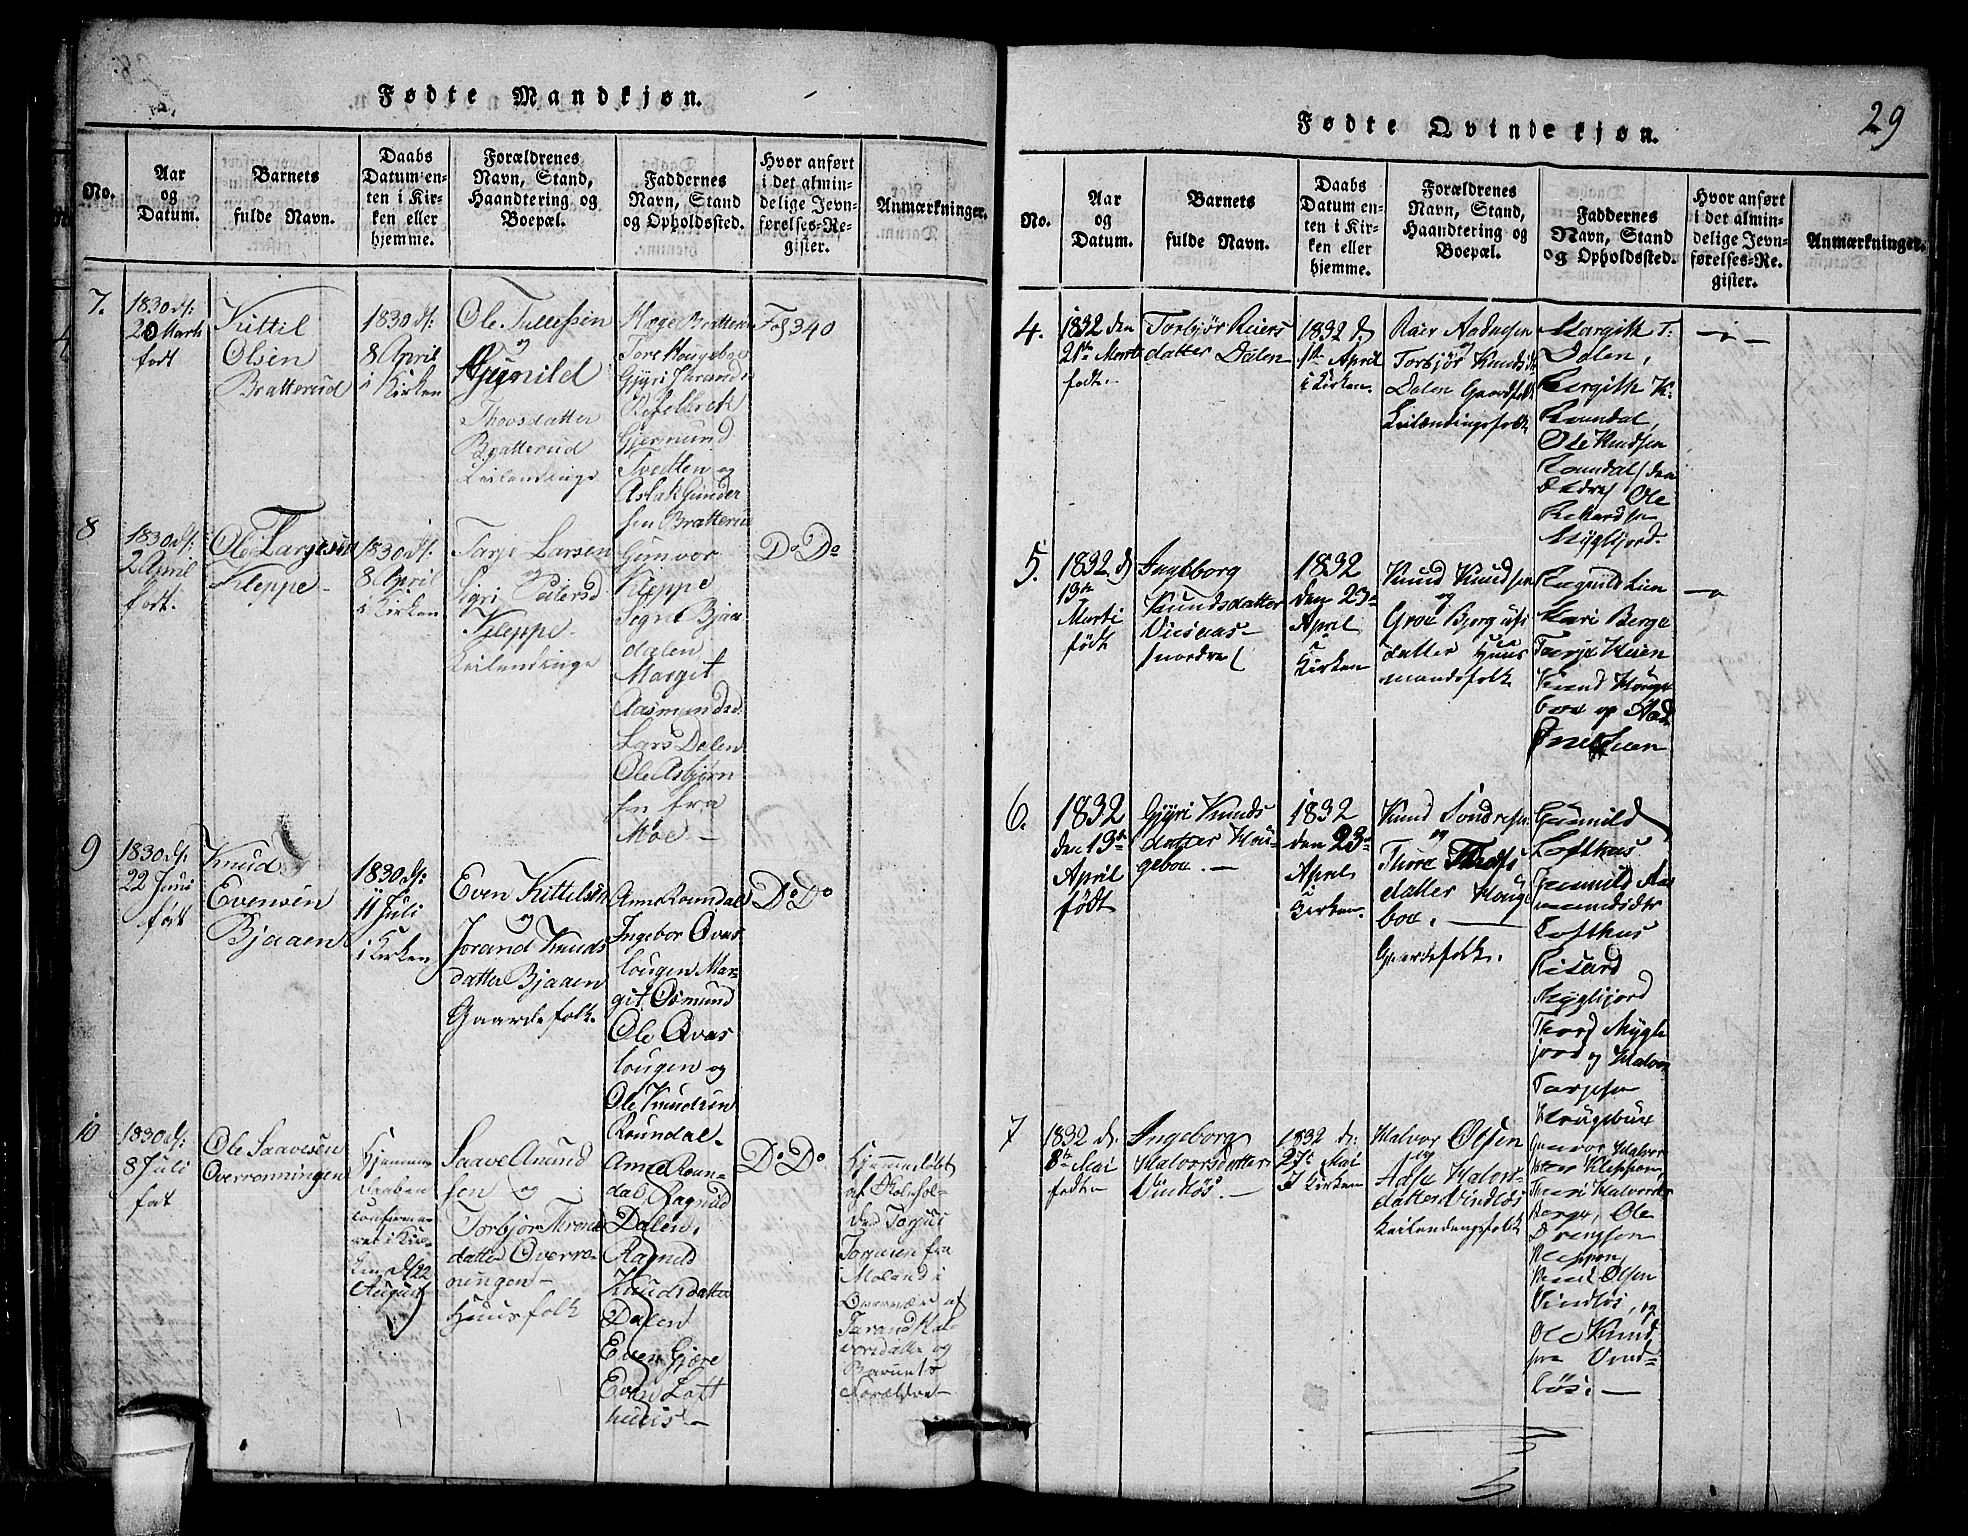 Fødte Mandkjøn.
No.
Aar
og
Datum.
Barnets
fulde Navn.
Daabs
Datum en-
ten i Kir-
ken eller
hjemme.
Forældrenes
Navn, Stand,
Haandtering og
Boepæl.
Faddernes
Navn, Stand
og Opholdssted.
Hvor anført
i det almin-
delige Jevn-
førelses-Re-
gister.
Anmærkninger.
7.
1830 d:
20 Marti
født
Kittil
Olsen
Bratterud
1830 d:
8 April
i Kirken
Ole Tullefsen
og
Thorsdatter
Bratterud
Leilendinge
Tore Hougeboe
Gjermund
Tvedten og
Aslak Gunder
sen Bratterud
Fol 340
8
1830 d:
2 April
født.
Ole Tarjesen
Kleppe
1830 d:
8 April
i Kirken
Tarje Larsen
og
Sigri Peiersd
Kleppe
Leilendinge
Gunvor
Kleppe
Signe Bjaa
dalen
Margit
Aasmundsd:
Lars Dalen
Ole Asbjørn
sen fra
Moe –
Do Do
9
1830 d:
22 Juni
født
Knud
Evensen
Bjaaen
1830 d:
11 Juli
i Kirken
Even Kittelsen
og
Jorand Knuds
datter Bjaaen
Gaardefolk.
Anne Roundal
Ingebor Qvas
lougen Mar-
git Osmund
Ole Qvas
lougen og
Ole Knudsen
Roundal.
Do Do
10
1830 d:
8 Juli
født
Ole Saavesen
Overronningen
Hjemme
Daaben
confirme-
ret i Kir-
ken d 22
August
Saave Amund
sen og
Torbjør Thrond
datter Overro-
ningen –
Huusfolk
Anne Roun-
dal, Ragnild
Dalen,
Ragnild
Knudsdatter
Dalen
Even Gjære
Even Loft
huus –
Do Do
Hjemmedøbt
af Skolehol-
der Torjus
Torjusen fra
Moland i
Overvær af
Jorand Hal-
vorsdatter og
Barnets
Forældre –
Fødte Qvindekjøn.
29
No.
Aar
og
Datum.
Barnets
fulde Navn.
Daabs
Datum en-
ten i Kir-
ken eller
hjemme.
Forældrenes
Navn, Stand,
Haandtering og
Boepæl.
Faddernes
Navn, Stand
og Opholdssted.
Hvor anført
i det almin-
delige Jevn-
førelses-Re-
gister.
Anmærkninger.
4.
1832 den
21de Marti
født
Torbjør Reiers
datter Dalen
1832 d
1ste April
i Kirken
Reier Aadnesen
og
Torbjør Knudsdt
Dalen Gaardfolk
Leilendingsfolk
Margith T:
Dalen,
Bergith K:
Roundal,
Ole Knudsen
Roundal den
Ældre, Ole
Rikardsen
Myglijord.
5.
1832 d
13de
Marti
født
Ingeborg
Knundsdatter
Viesaas
nordre
1832
den 23de
April
i
Kirken
Knud Knudsen
og
Groe Bjorgufs
datter Huus
mandsfolk
Ragnild Lien
Mari Berge
Tarje Heien
Knud Houge
boe og
6.
1832
den 13de
April
født
Gjyri Knuds
datter Hou-
geboe. –
1832
den 23de
April
i
Kirken.
Knud Sondresen
og
Thore
datter Houge
boe. –
Gaardefolk.
Gunnild
Lofthus
Gunnild Aas
mundsdtr
Lofthus
Ricard
Myglijord
Thord Mygle
jord og Halvor
Tarjesen
Hougeboe
7
1832 d.
8de Mai
født
Ingeborg
Halvorsdatter
Vindløs. –
1832 d:
27de Mai
i Kirken
Halvor Olsen
og
Halvors-
datter Vindløs
Leilendingsfolk
Gunvor Halvor
datter Kleppen,
Thori Halvordtr
Berge, Ole
Kleppen
Knud Olsen
Vindløs, og
Ole Knud
sen Vind-
løs. –